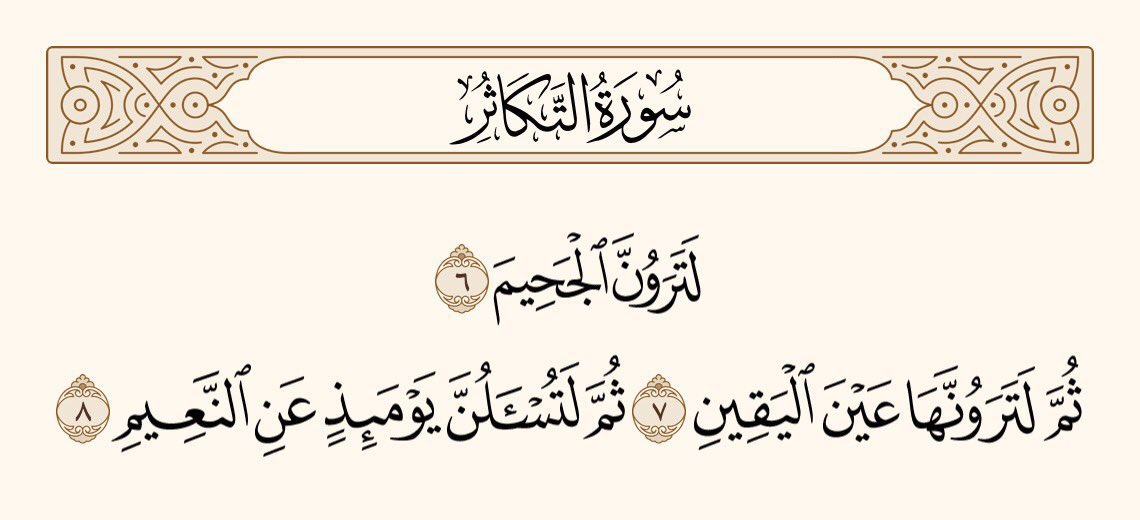 سُورَةُ التَّكَاثُرِ
لَتَرَوُنَّ ٱلْجَحِيمَ ٦
ثُمَّ لَتَرَوُنَّهَا عَيْنَ ٱلْيَقِينِ ٧ ثُمَّ لَتُسْـَٔلُنَّ يَوْمَئِذٍ عَنِ ٱلنَّعِيمِ ٨